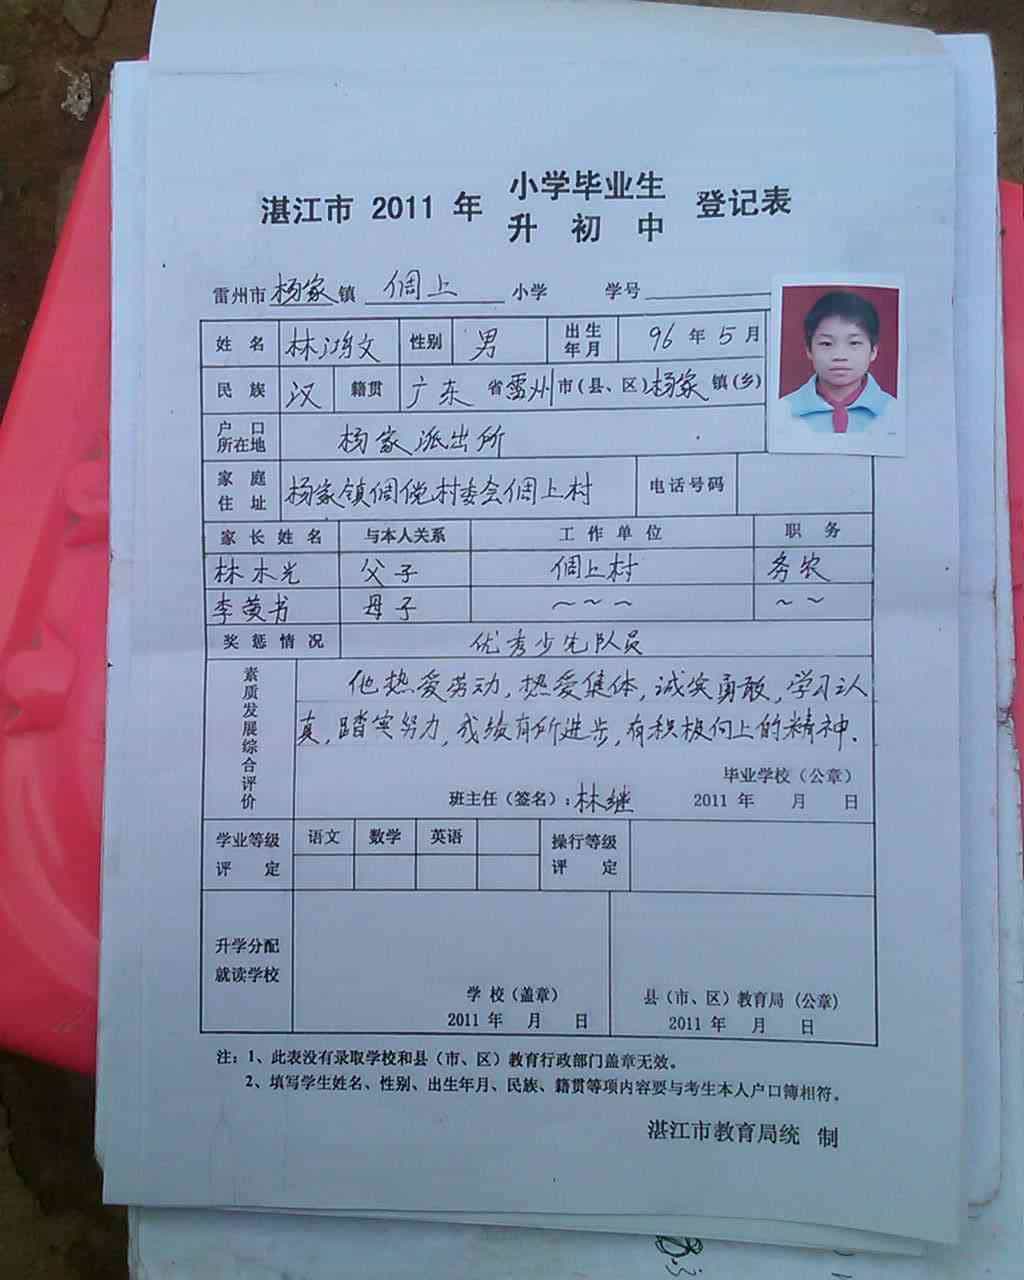 湛江市 2011 年 小学毕业生 登记表
升 初 中
雷州市杨家镇 倜上 小学 学号
姓 名 林鸿文 性别 男 出生年月 96 年 5 月
民 族 汉 籍贯 广东 省雷州市(县、区)杨家镇(乡)
户 口 所在地 杨家派出所
家 庭 住 址 杨家镇倜傥村委会倜上村 电话号码
家 长 姓 名 与本人关系 工 作 单 位 职 务
林木光 父子 倜上村 务农
李英书 母子 ～～～ ～～
奖 惩 情 况 优秀少先队员
素质发展综合评价
他热爱劳动,热爱健体,诚实勇敢,学习认
真,踏实努力,成绩有所进步,有积极向上的精神.
毕业学校（公章）
班主任（签名）：林继 2011 年 月 日
学业等级 语文 数学 英语 操行等级
评 定 评 定
升学分配
就读学校
学 校（盖章） 县（市、区）教育局（公章）
2011 年 月 日 2011 年 月 日
注：1、此表没有录取学校和县（市、区）教育行政部门盖章无效。
2、填写学生姓名、性别、出生年月、民族、籍贯等项内容要与考生本人户口簿相符。
湛江市教育局统 制